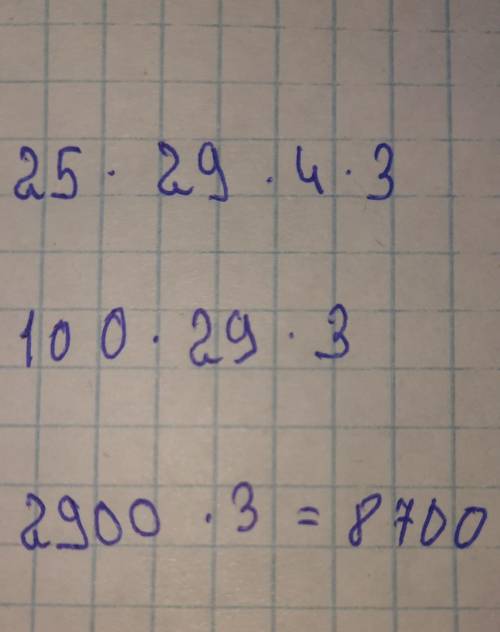 25 · 29 · 4 · 3
100 · 29 · 3
2900 · 3 = 8700